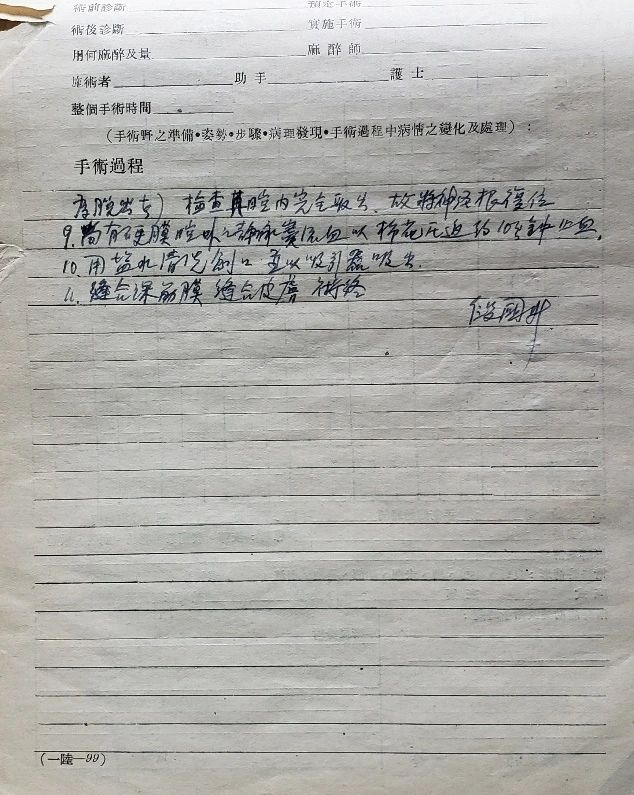 術前診斷 預定手術
術後診斷 實施手術
用何麻醉及量 麻醉師
施術者 助手 護士
整個手術時間
(手術野之準備•姿勢•步驟•病理發現•手術過程中病情之變化及處理):
手術過程
脫出) 檢查其腔內完全取出、故將神經根復位
9.尚有硬膜腔外之靜脈叢流血以棉花压迫约10分鐘止血.
10.用盐水清洗創口 並以吸引器吸出.
11.縫合深筋膜 縫合皮膚 術終
國
(一陸—99)